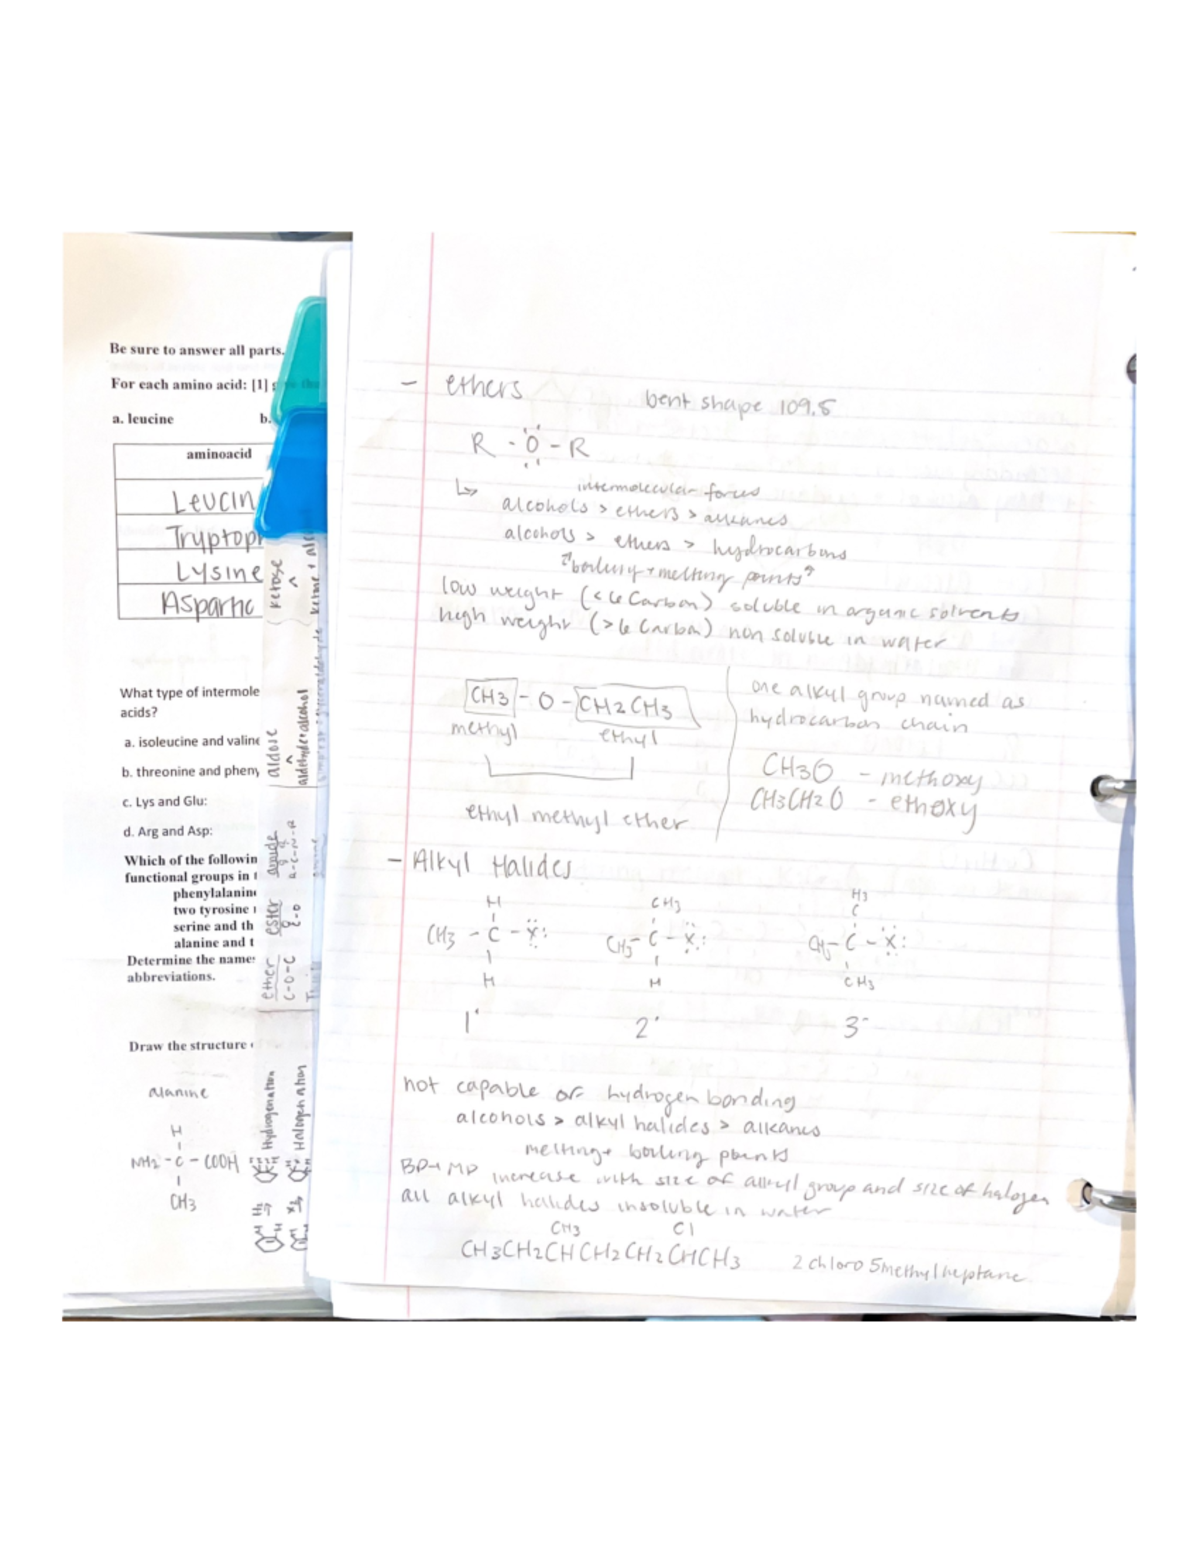 Be sure to answer all parts.
For each amino acid: [1]
a. leucine b.
aminoacid
Leucin
Tryptop
Lysine
Aspartic
What type of intermole
acids?
a. isoleucine and valine
b. threonine and pheny
c. Lys and Glu:
d. Arg and Asp:
Which of the followin
functional groups in t
phenylalanine
two tyrosine
serine and th
alanine and t
Determine the names
abbreviations.
Draw the structure
alanine
H
NH2 - C - COOH
CH3
ketose
ketone + alco
aldose
aldehyde + alcohol
amide
ester
ether
C-O-C
Hydrogenation
Halogenation
- ethers bent shape 109.5
R - O - R
intermolecular forces
alcohols > ethers > alkanes
alcohols > ethers > hydrocarbons
"boiling + melting points"
low weight (<6 Carbon) soluble in organic solvents
high weight (>6 Carbon) non soluble in water
CH3 - O - CH2CH3
methyl ethyl
ethyl methyl ether
one alkyl group named as
hydrocarbon chain
CH3O - methoxy
CH3CH2O - ethoxy
- Alkyl Halides
H CH3 H3
C
CH3 - C - X: CH3 - C - X: CH3 - C - X:
H H CH3
1° 2° 3°
not capable of hydrogen bonding
alcohols > alkyl halides > alkanes
melting + boiling points
BP + MP increase with size of alkyl group and size of halogen
all alkyl halides insoluble in water
CH3 Cl
CH3CH2CHCH2CH2CHCH3 2 chloro 5methylheptane